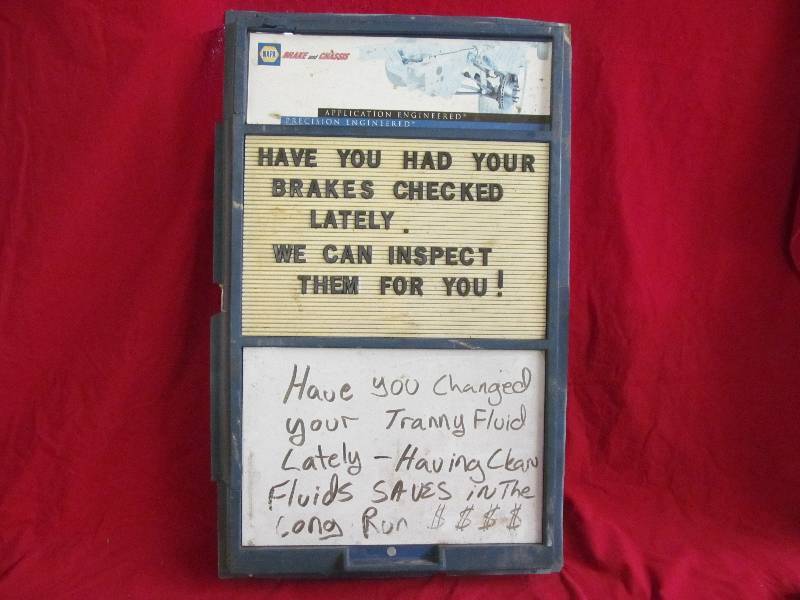 NAPA BRAKE and CHASSIS
APPLICATION ENGINEERED
PRECISION ENGINEERED
HAVE YOU HAD YOUR
BRAKES CHECKED
LATELY.
WE CAN INSPECT
THEM FOR YOU!
Have you Changed
your Tranny Fluid
Lately - Having Clean
Fluids SAVES in The
Long Run $ $ $ $